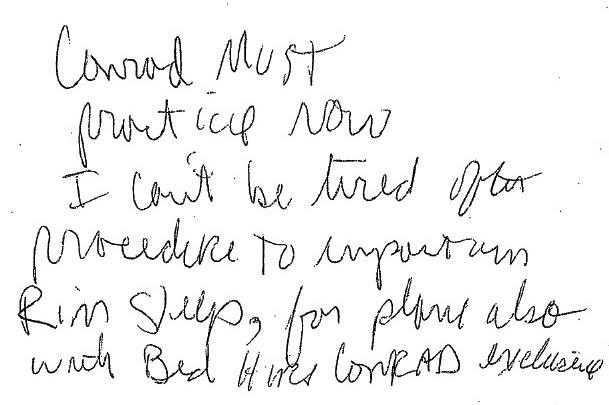 Conrad Must
practice now
I can't be tired after
procedure to important
Rim sleep, for plane also
with Bed Hires CONRAD exclusive